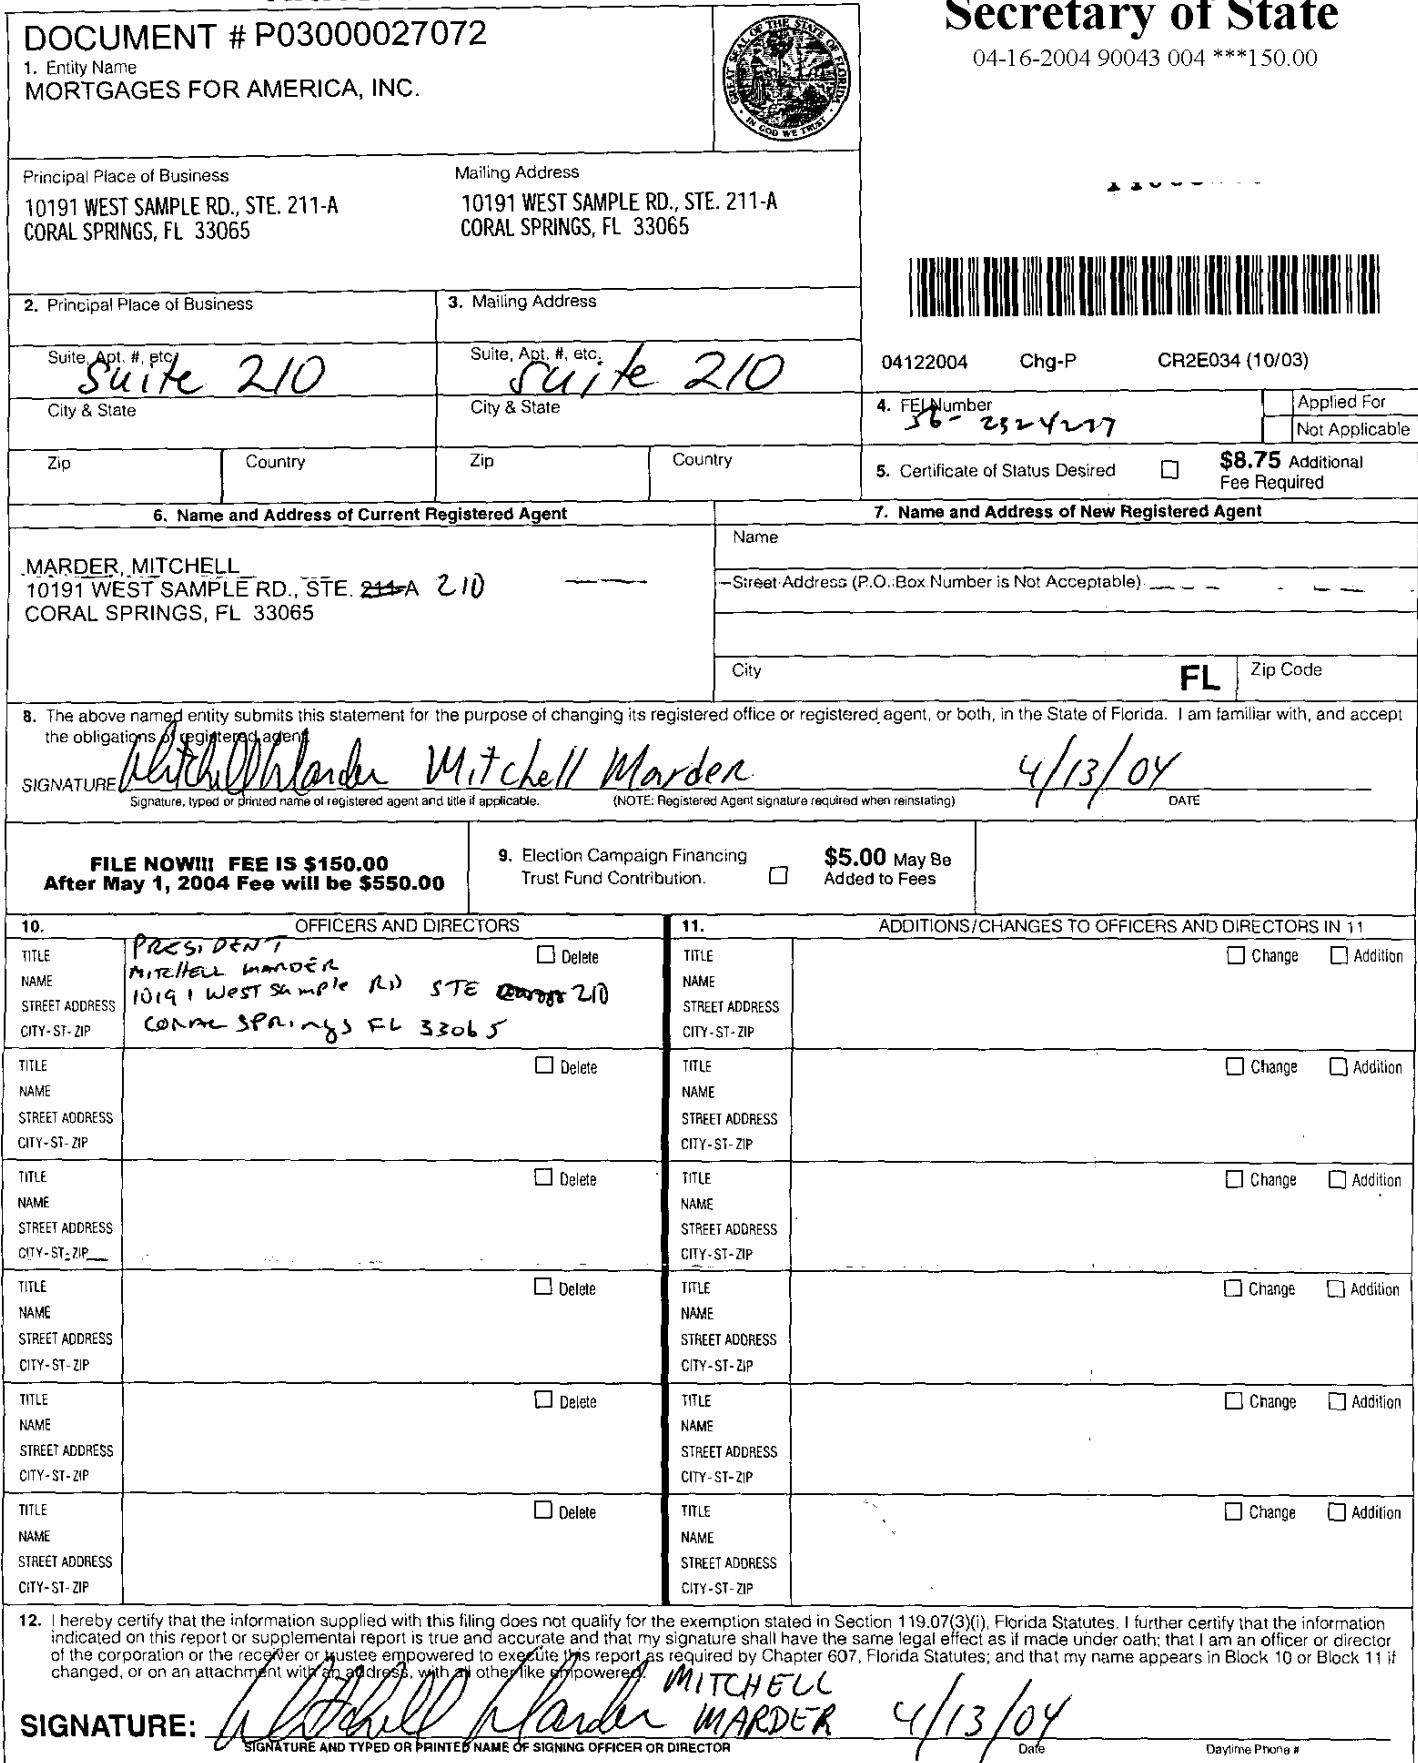 Secretary of State
04-16-2004 90043 004 ***150.00
DOCUMENT # P03000027072
1. Entity Name
MORTGAGES FOR AMERICA, INC.
GREAT SEAL OF THE STATE OF FLORIDA
IN GOD WE TRUST
Principal Place of Business
10191 WEST SAMPLE RD., STE. 211-A
CORAL SPRINGS, FL 33065
Mailing Address
10191 WEST SAMPLE RD., STE. 211-A
CORAL SPRINGS, FL 33065
2. Principal Place of Business
3. Mailing Address
Suite, Apt. #, etc.
Suite 210
Suite, Apt. #, etc.
Suite 210
City & State
City & State
Zip
Country
Zip
Country
04122004 Chg-P CR2E034 (10/03)
4. FEI Number
Applied For
Not Applicable
5. Certificate of Status Desired
$8.75 Additional
Fee Required
6. Name and Address of Current Registered Agent
MARDER, MITCHELL
10191 WEST SAMPLE RD., STE. 211-A 210
CORAL SPRINGS, FL 33065
7. Name and Address of New Registered Agent
Name
Street Address (P.O. Box Number is Not Acceptable)
City
FL
Zip Code
8. The above named entity submits this statement for the purpose of changing its registered office or registered agent, or both, in the State of Florida. I am familiar with, and accept
the obligations of registered agent
SIGNATURE Mitchell Marder Mitchell Marder 4/13/04
Signature, typed or printed name of registered agent and title if applicable. (NOTE: Registered Agent signature required when reinstating) DATE
FILE NOW!!! FEE IS $150.00
After May 1, 2004 Fee will be $550.00
9. Election Campaign Financing
Trust Fund Contribution.
$5.00 May Be
Added to Fees
10. OFFICERS AND DIRECTORS
11. ADDITIONS/CHANGES TO OFFICERS AND DIRECTORS IN 11
TITLE PRESIDENT Delete
NAME MITCHELL MARDER
STREET ADDRESS 10191 West Sample RD STE 210
CITY-ST-ZIP CORAL SPRINGS FL 33065
TITLE Change Addition
NAME
STREET ADDRESS
CITY-ST-ZIP
TITLE Delete
NAME
STREET ADDRESS
CITY-ST-ZIP
TITLE Change Addition
NAME
STREET ADDRESS
CITY-ST-ZIP
TITLE Delete
NAME
STREET ADDRESS
CITY-ST-ZIP
TITLE Change Addition
NAME
STREET ADDRESS
CITY-ST-ZIP
TITLE Delete
NAME
STREET ADDRESS
CITY-ST-ZIP
TITLE Change Addition
NAME
STREET ADDRESS
CITY-ST-ZIP
TITLE Delete
NAME
STREET ADDRESS
CITY-ST-ZIP
TITLE Change Addition
NAME
STREET ADDRESS
CITY-ST-ZIP
TITLE Delete
NAME
STREET ADDRESS
CITY-ST-ZIP
TITLE Change Addition
NAME
STREET ADDRESS
CITY-ST-ZIP
12. I hereby certify that the information supplied with this filing does not qualify for the exemption stated in Section 119.07(3)(i), Florida Statutes. I further certify that the information
indicated on this report or supplemental report is true and accurate and that my signature shall have the same legal effect as if made under oath; that I am an officer or director
of the corporation or the receiver or trustee empowered to execute this report as required by Chapter 607, Florida Statutes; and that my name appears in Block 10 or Block 11 if
changed, or on an attachment with an address, with all other like empowered.
MITCHELL
SIGNATURE: Mitchell Marder MARDER 4/13/04
SIGNATURE AND TYPED OR PRINTED NAME OF SIGNING OFFICER OR DIRECTOR Date Daytime Phone #